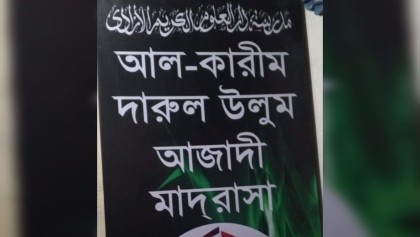 مدرسة دار العلوم الكريم الازادي
আল-কারীম
দারুল উলুম
আজাদী
মাদ্‌রাসা